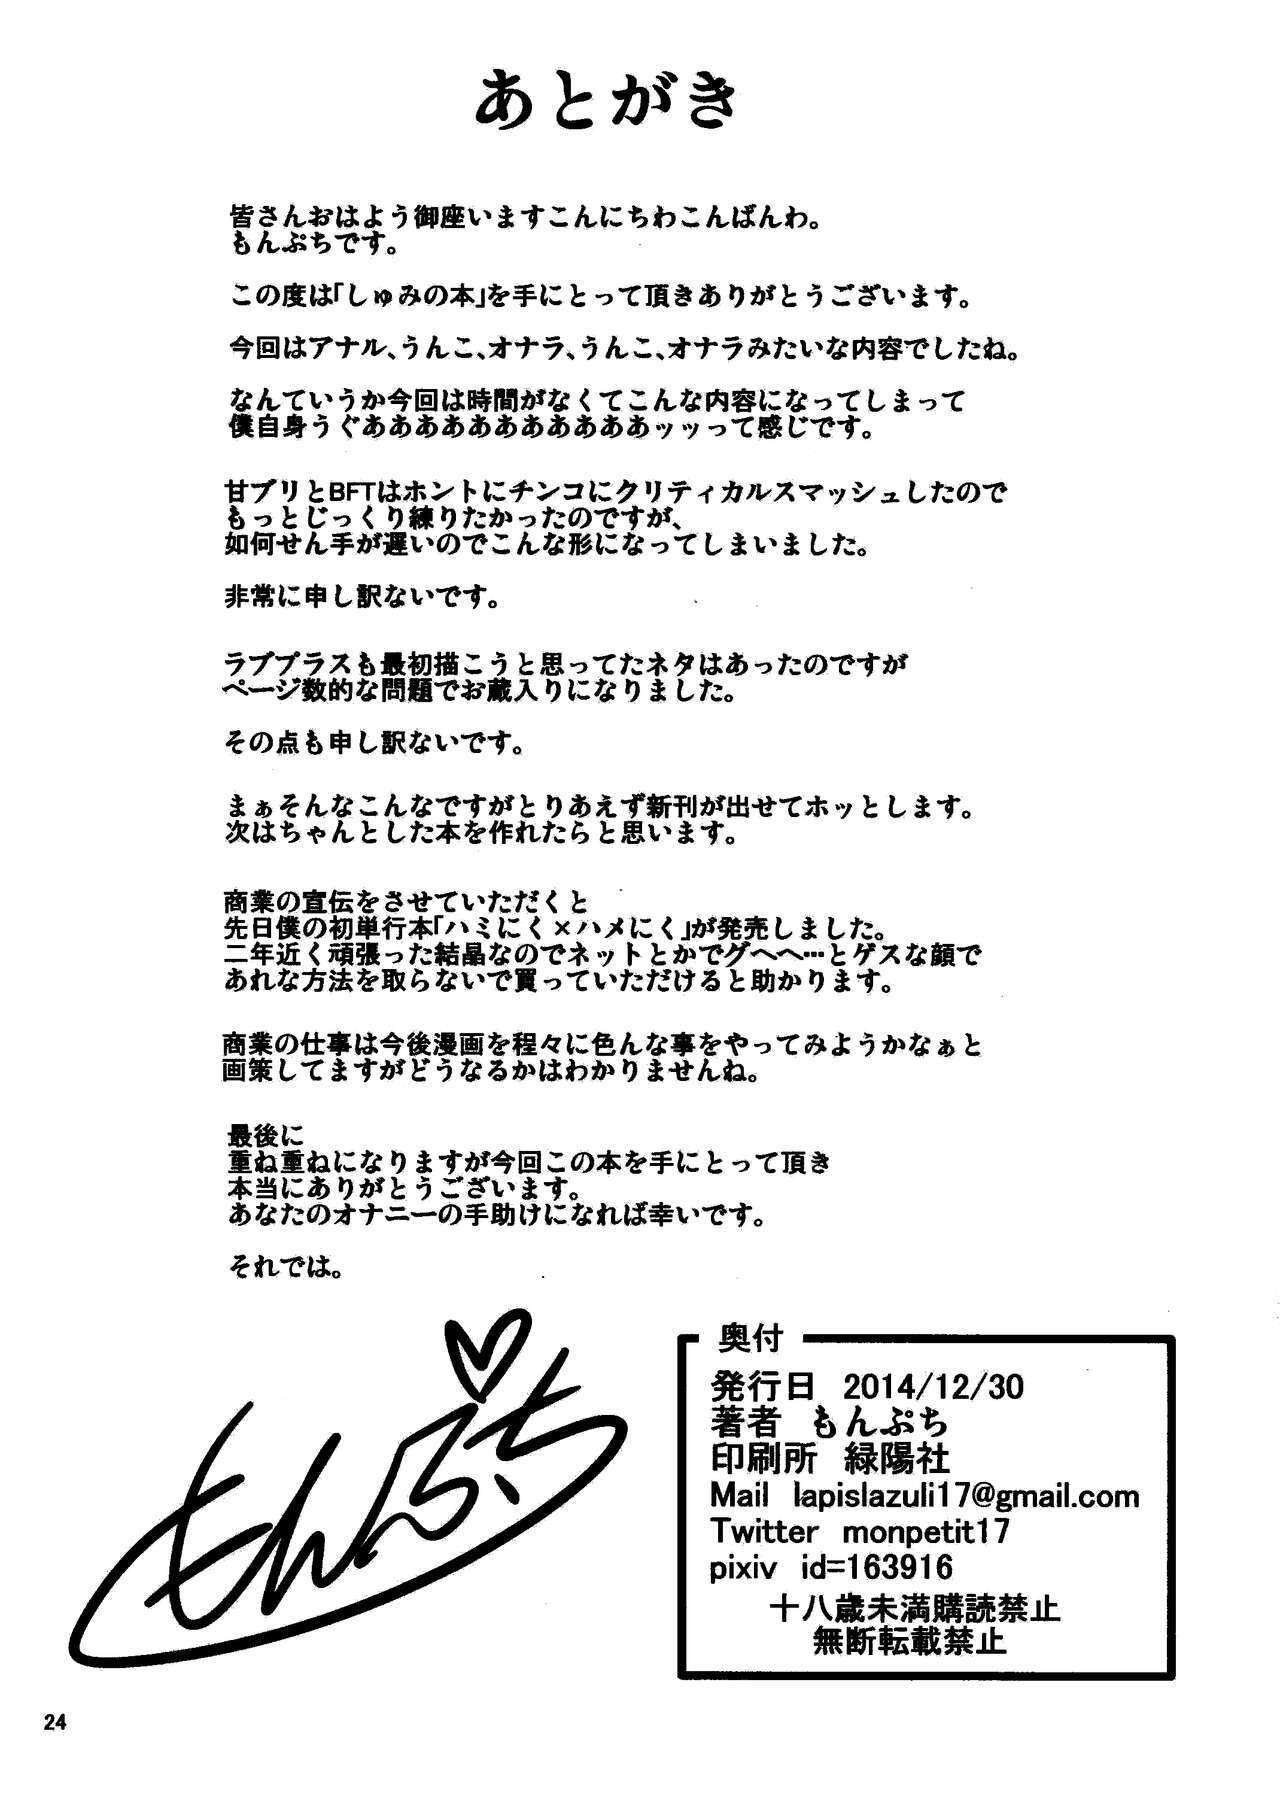 あとがき
皆さんおはよう御座いますこんにちわこんばんわ。
もんぷちです。
この度は「しゅみの本」を手にとって頂きありがとうございます。
今回はアナル、うんこ、オナラ、うんこ、オナラみたいな内容でしたね。
なんていうか今回は時間がなくてこんな内容になってしまって
僕自身うぐあああああああああああッッって感じです。
甘ブリとBFTはホントにチンコにクリティカルスマッシュしたので
もっとじっくり練りたかったのですが、
如何せん手が遅いのでこんな形になってしまいました。
非常に申し訳ないです。
ラブプラスも最初描こうと思ってたネタはあったのですが
ページ数的な問題でお蔵入りになりました。
その点も申し訳ないです。
まぁそんなこんなですがとりあえず新刊が出せてホッとします。
次はちゃんとした本を作れたらと思います。
商業の宣伝をさせていただくと
先日僕の初単行本「ハミにく×ハメにく」が発売しました。
二年近く頑張った結晶なのでネットとかでグへへ…とゲスな顔で
あれな方法を取らないで買っていただけると助かります。
商業の仕事は今後漫画を程々に色んな事をやってみようかなぁと
画策してますがどうなるかはわかりませんね。
最後に
重ね重ねになりますが今回この本を手にとって頂き
本当にありがとうございます。
あなたのオナニーの手助けになれば幸いです。
それでは。
もんぷち
奥付
発行日 2014/12/30
著者 もんぷち
印刷所 緑陽社
Mail lapislazuli17@gmail.com
Twitter monpetit17
pixiv id=163916
十八歳未満購読禁止
無断転載禁止
24